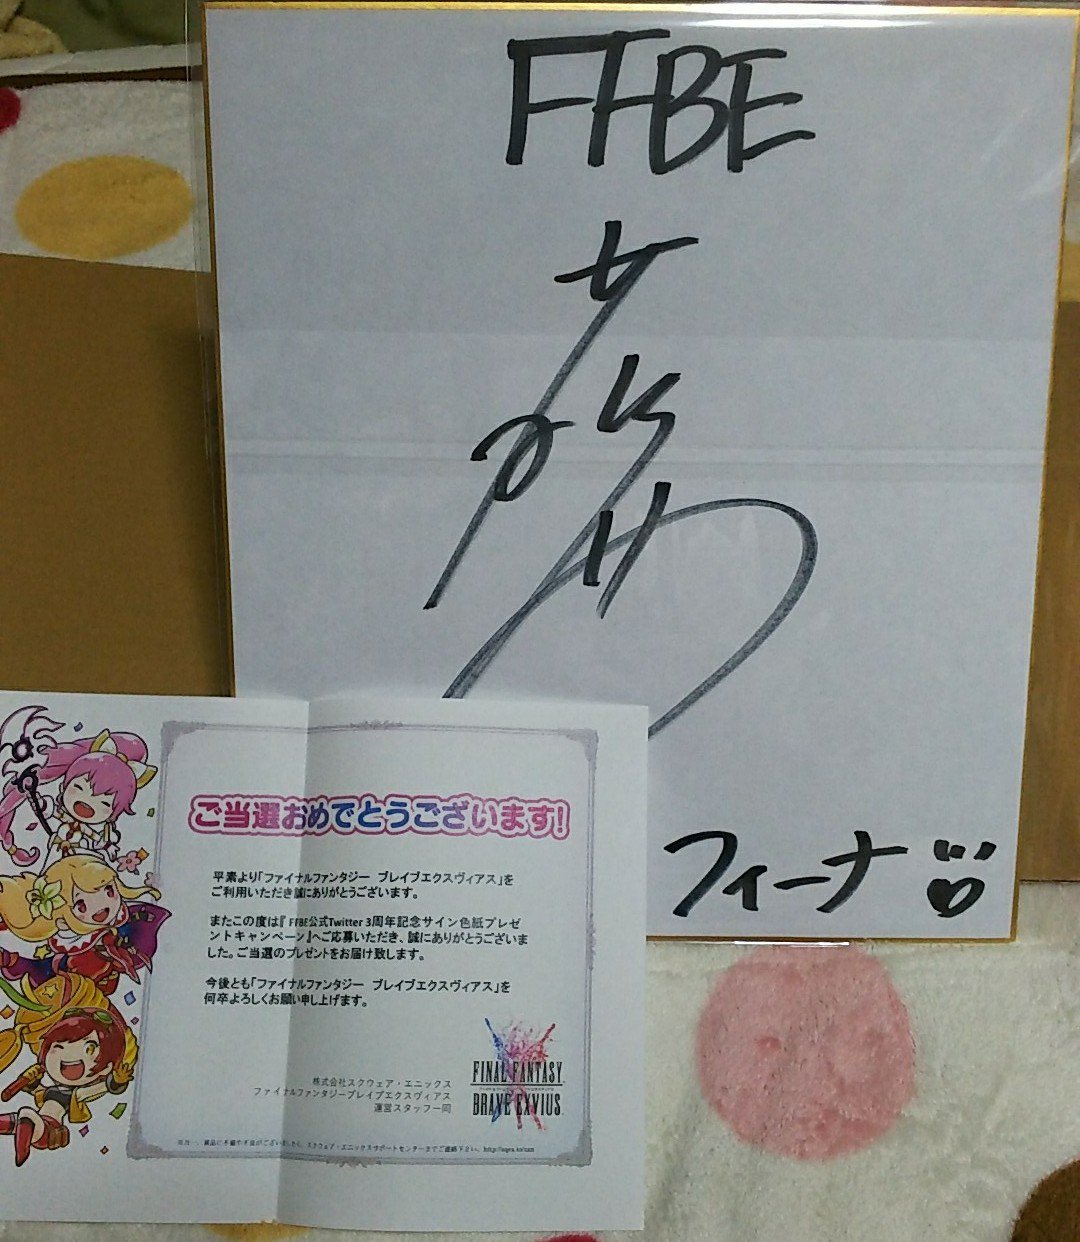 FFBE
フィーナ
ご当選おめでとうございます!
平素より「ファイナルファンタジー ブレイブエクスヴィアス」を
ご利用いただき誠にありがとうございます。
またこの度は『FFBE公式Twitter 3周年記念サイン色紙プレゼ
ントキャンペーン』へご応募いただき、誠にありがとうございま
した。ご当選のプレゼントをお届け致します。
今後とも「ファイナルファンタジー ブレイブエクスヴィアス」を
何卒よろしくお願い申し上げます。
株式会社スクウェア・エニックス
ファイナルファンタジーブレイブエクスヴィアス
運営スタッフ一同
FINAL FANTASY
BRAVE EXVIUS
万が一、賞品に不備や不良がございましたら、スクウェア・エニックスサポートセンターまでご連絡下さい。